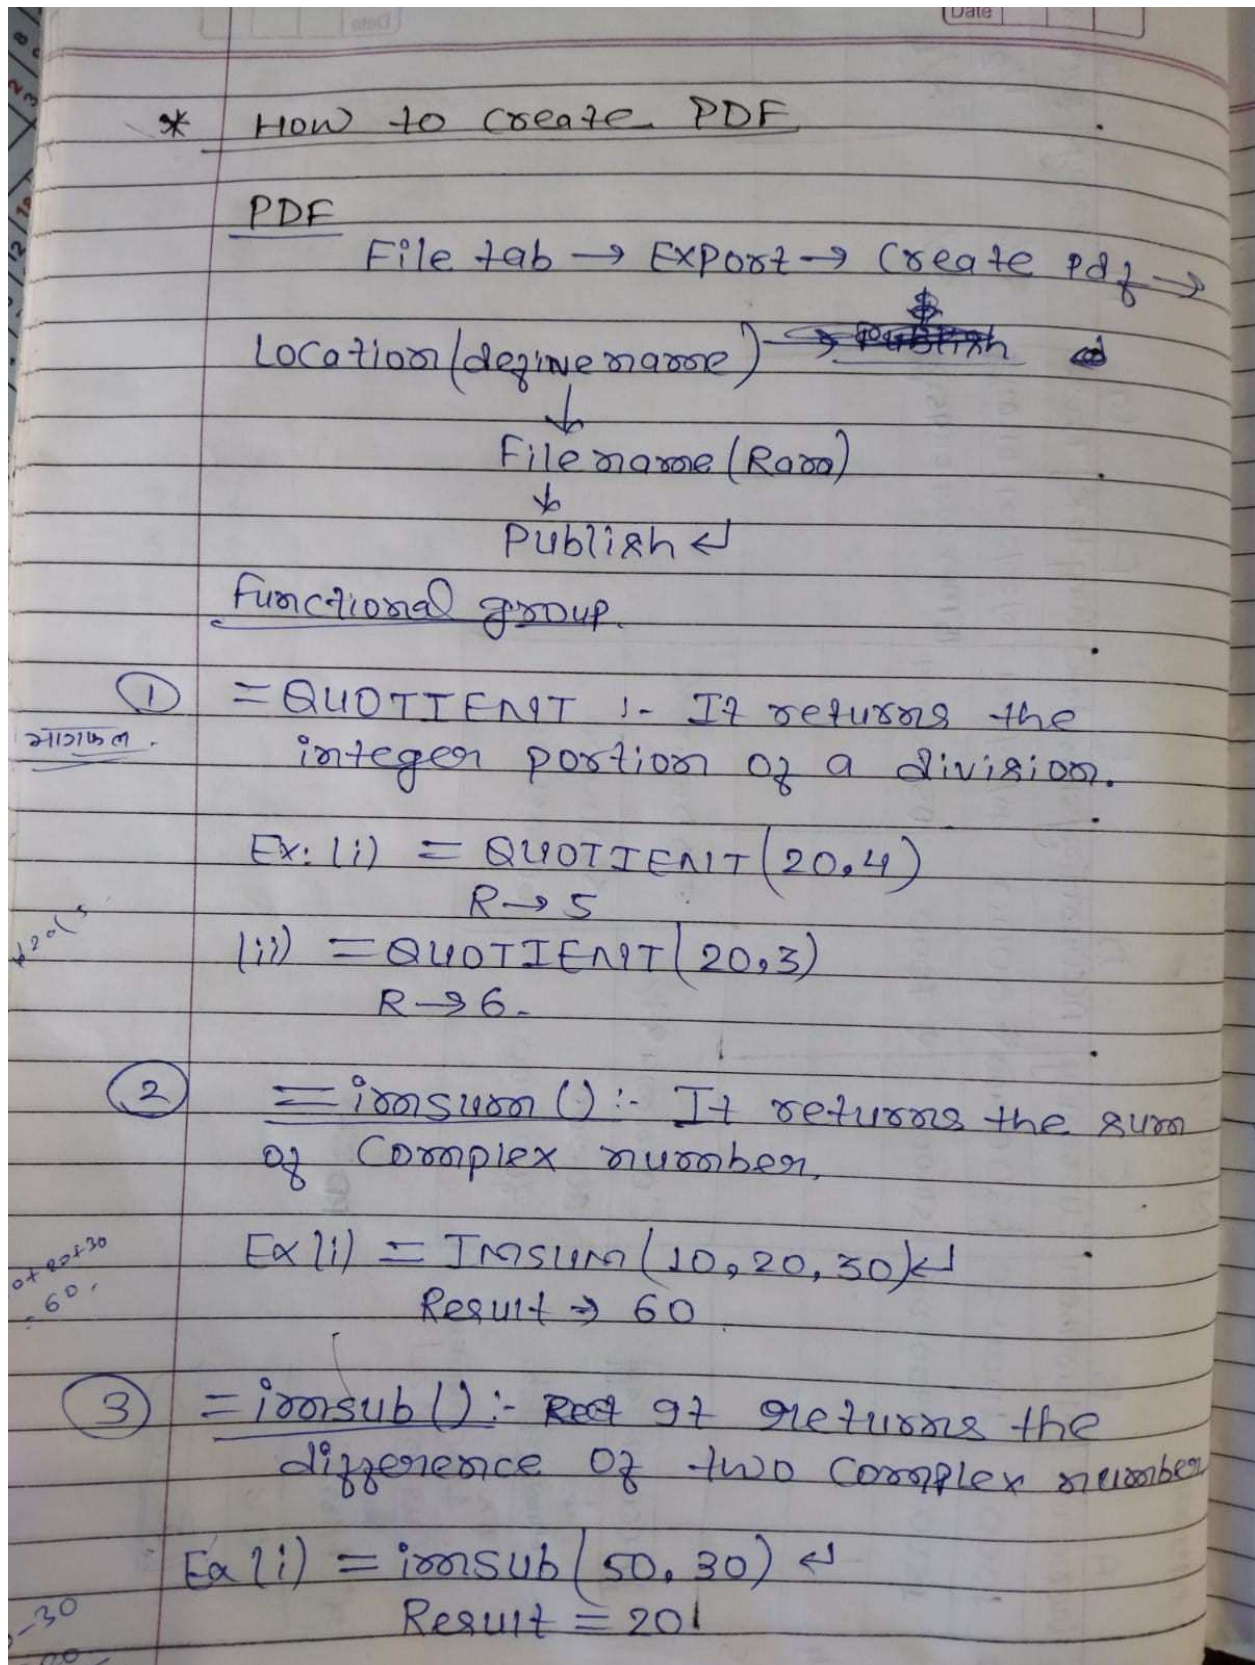 Date
* How to create PDF
PDF
File tab → Export → Create pdf →
Location (define name)
↓
File name (Ram)
↓
Publish ↵
Functional group.
① = QUOTIENT :- It returns the
भागफल.
integer portion of a division.
Ex: (i) = QUOTIENT (20,4)
R → 5
(ii) = QUOTIENT (20,3)
R → 6.
② = imsum () :- It returns the sum
of Complex number.
Ex (i) = IMSUM (10, 20, 30) ↵
0+20+30
= 60.
Result → 60
③ = imsub () :- It returns the
difference of two complex number
Ex (i) = imsub (50, 30) ↵
-30
Result = 20